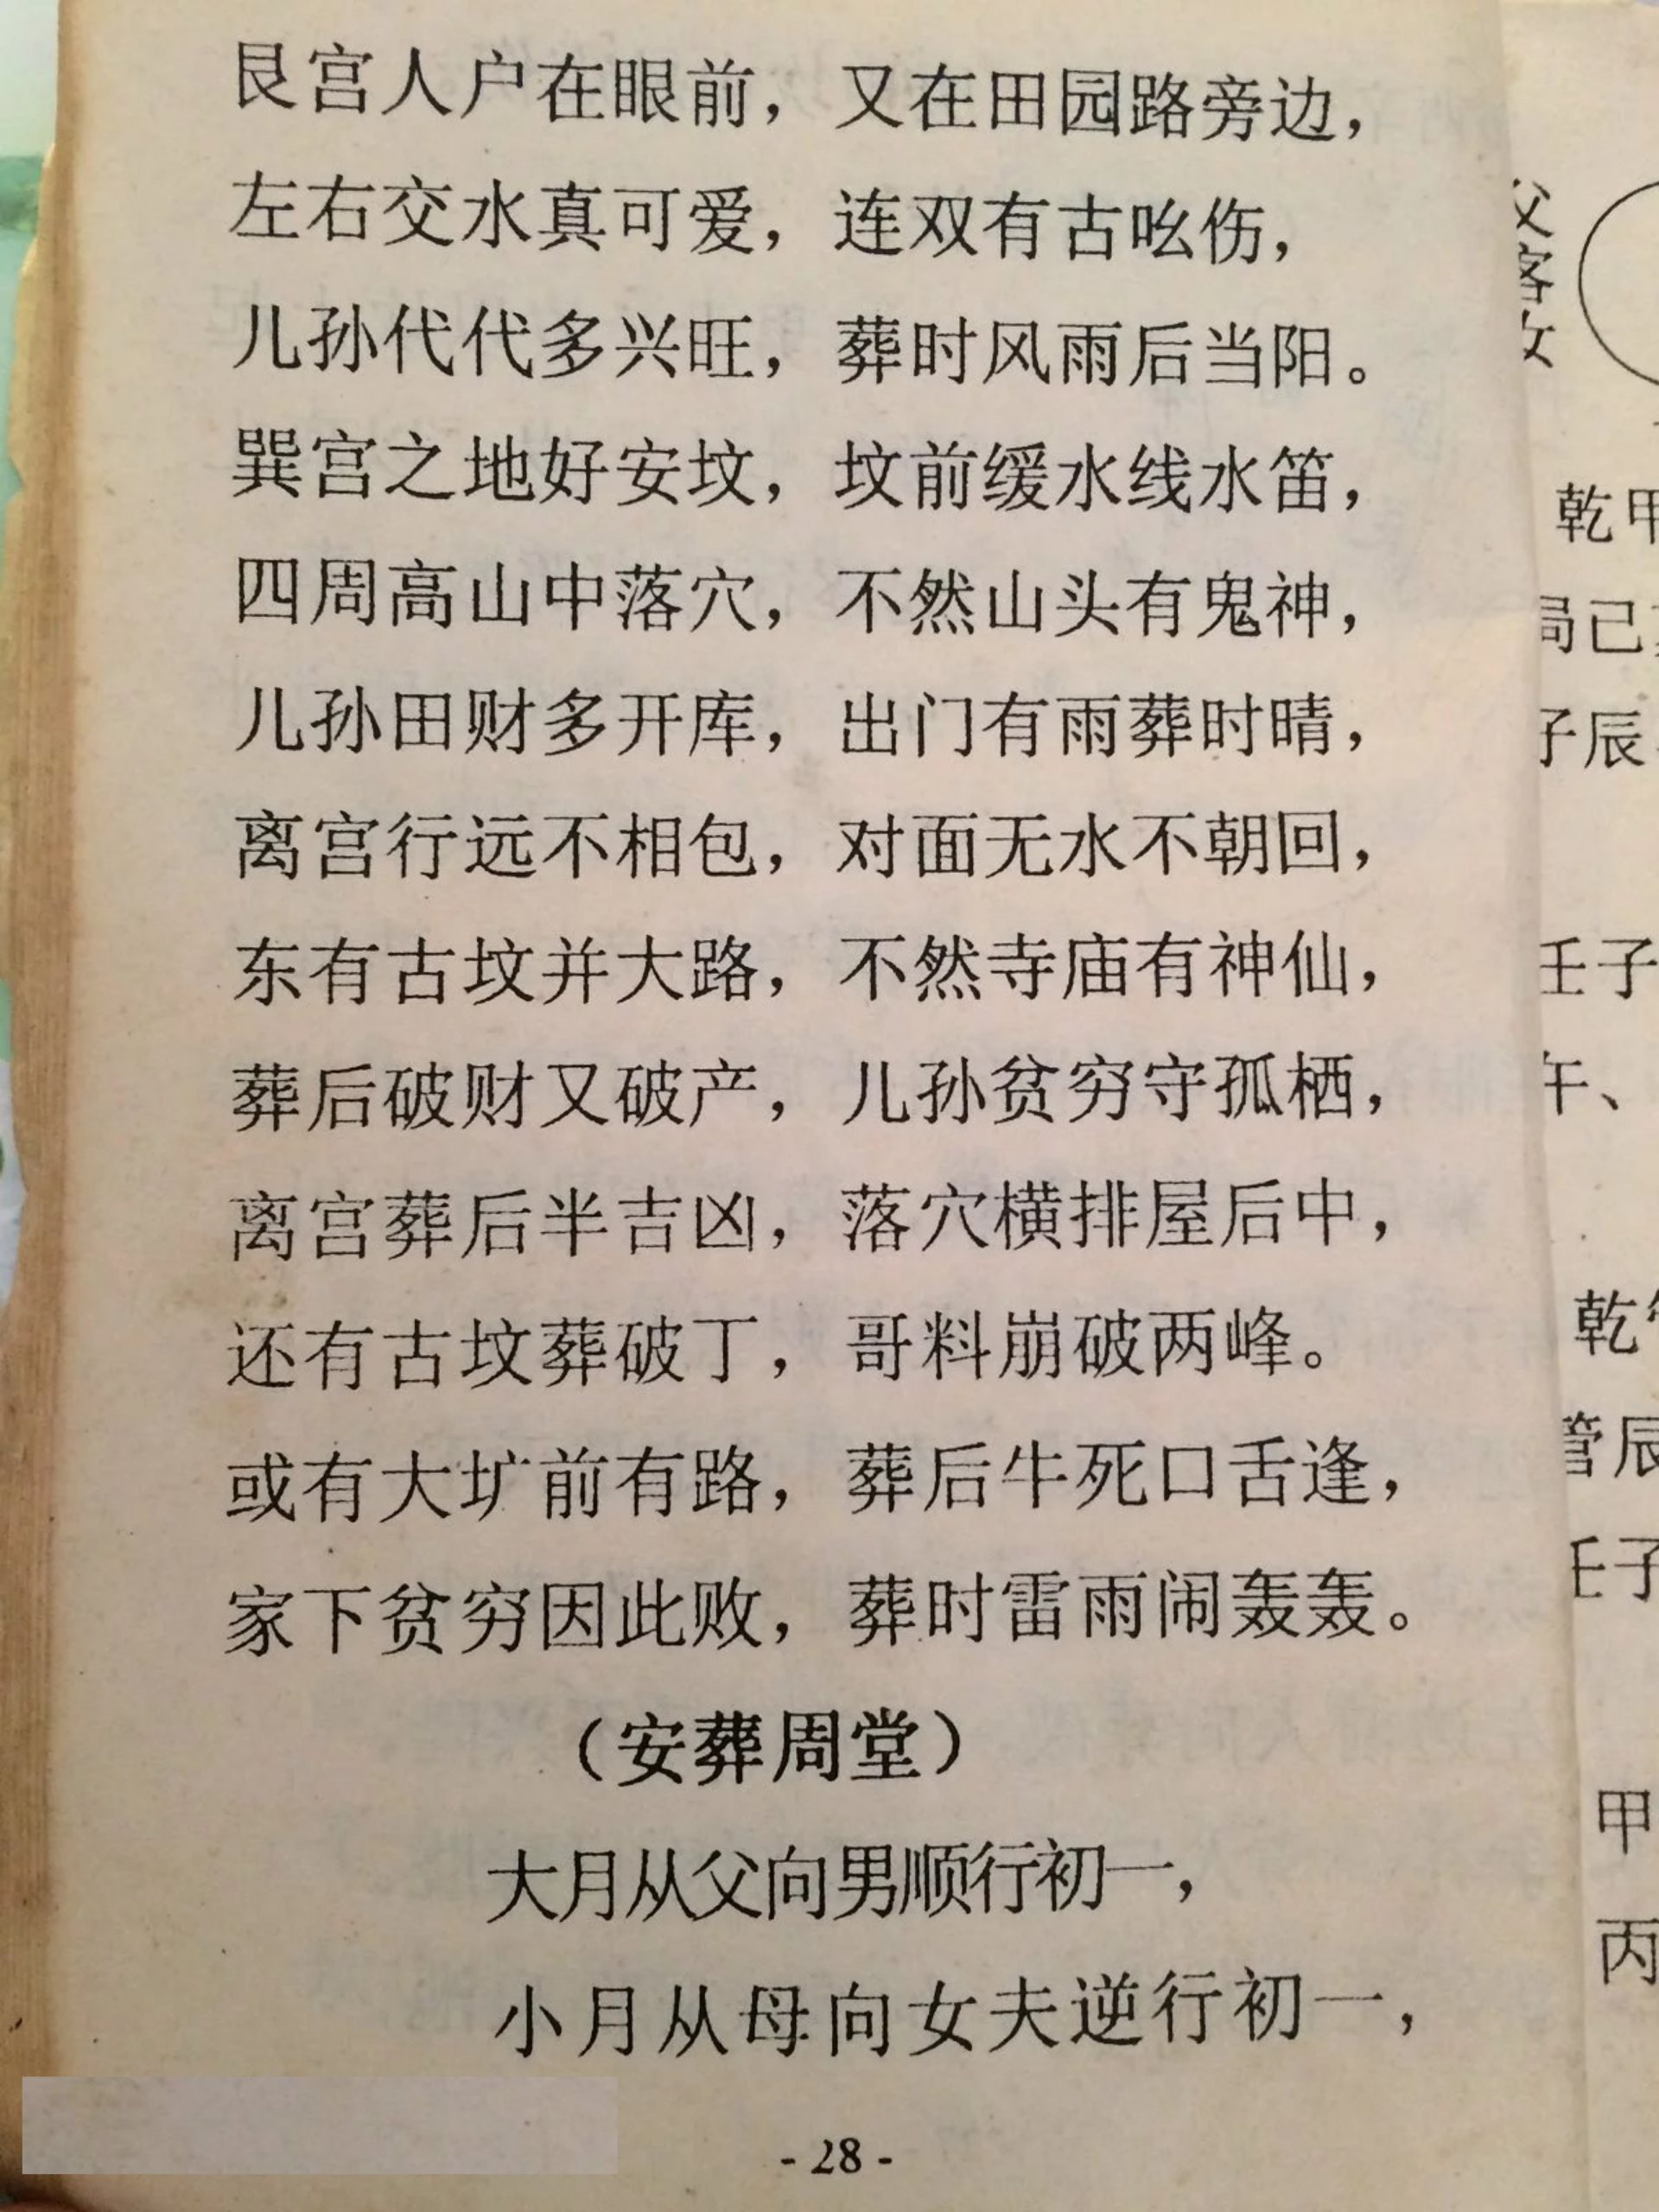 艮宫人户在眼前，又在田园路旁边，
左右交水真可爱，连双有古吆伤，
儿孙代代多兴旺，葬时风雨后当阳。
巽宫之地好安坟，坟前缓水线水笛，
四周高山中落穴，不然山头有鬼神，
儿孙田财多开库，出门有雨葬时晴，
离宫行远不相包，对面无水不朝回，
东有古坟并大路，不然寺庙有神仙，
葬后破财又破产，儿孙贫穷守孤栖，
离宫葬后半吉凶，落穴横排屋后中，
还有古坟葬破丁，哥料崩破两峰。
或有大圹前有路，葬后牛死口舌逢，
家下贫穷因此败，葬时雷雨闹轰轰。
（安葬周堂）
大月从父向男顺行初一，
小月从母向女夫逆行初一，
- 28 -
父客女
乾甲
局己
子辰
壬子
午、
乾
管辰
壬子
甲
丙